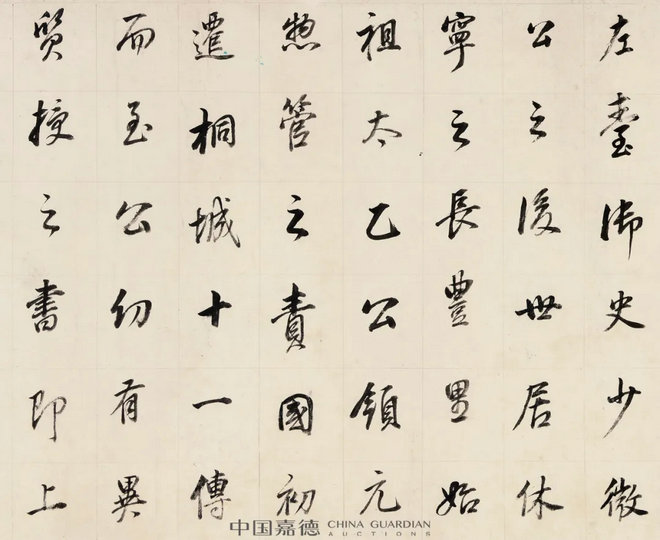 左臺御史少微
公之後世居休
寧之長豐里始
祖太乙公領元
惣管之責國初
遷桐城十一傳
而至公幼有異
質授之書即上
中国嘉德 CHINA GUARDIAN
AUCTIONS